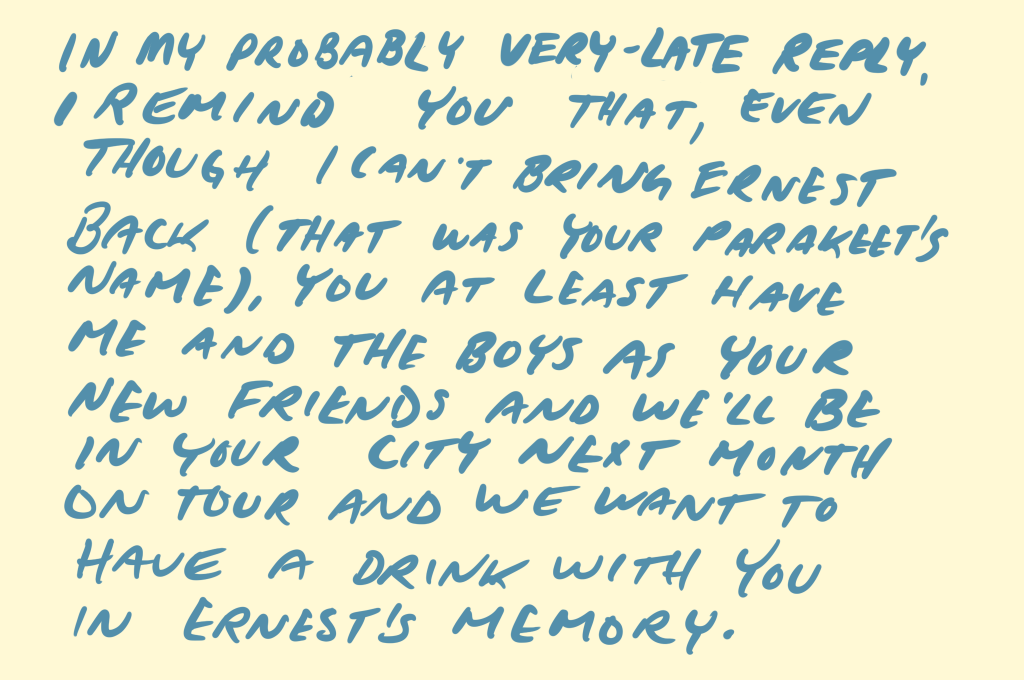 IN MY PROBABLY VERY-LATE REPLY,
I REMIND YOU THAT, EVEN
THOUGH I CAN'T BRING ERNEST
BACK (THAT WAS YOUR PARAKEET'S
NAME), YOU AT LEAST HAVE
ME AND THE BOYS AS YOUR
NEW FRIENDS AND WE'LL BE
IN YOUR CITY NEXT MONTH
ON TOUR AND WE WANT TO
HAVE A DRINK WITH YOU
IN ERNEST'S MEMORY.